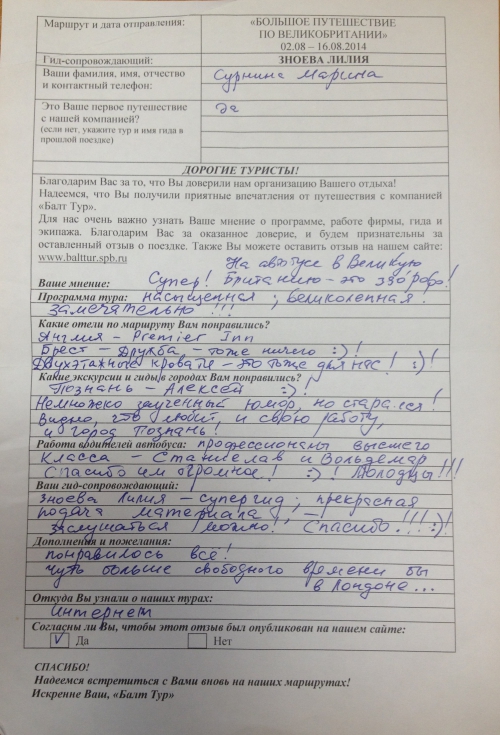 Маршрут и дата отправления:
«БОЛЬШОЕ ПУТЕШЕСТВИЕ
ПО ВЕЛИКОБРИТАНИИ»
02.08 – 16.08.2014
Гид-сопровождающий:
ЗНОЕВА ЛИЛИЯ
Ваши фамилия, имя, отчество
и контактный телефон:
Сурнина Марина
Это Ваше первое путешествие
с нашей компанией?
(если нет, укажите тур и имя гида в
прошлой поездке)
да
ДОРОГИЕ ТУРИСТЫ!
Благодарим Вас за то, что Вы доверили нам организацию Вашего отдыха!
Надеемся, что Вы получили приятные впечатления от путешествия с компанией
«Балт Тур».
Для нас очень важно узнать Ваше мнение о программе, работе фирмы, гида и
экипажа. Благодарим Вас за оказанное доверие, и будем признательны за
оставленный отзыв о поездке. Также Вы можете оставить отзыв на нашем сайте:
www.balttur.spb.ru
На автобусе в Великую
Ваше мнение: Супер! Британию – это здорово!
Программа тура: насыщенная, великолепная!
замечательно!!!
Какие отели по маршруту Вам понравились?
Англия – Premier Inn
Брест – Дружба – тоже ничего :)!
Двухэтажные кровати – это тоже для нас! :)!
Какие экскурсии и гиды в городах Вам понравились?
Познань – Алексей :)!
Немножко заученный юмор, но старается!
Видно, что любит и свою работу,
и город Познань!
Работа водителей автобуса: профессионалы высшего
класса – Станислав и Вольдемар
Спасибо им огромное! :)! Молодцы!!!
Ваш гид-сопровождающий:
Зноева Лилия – супергид; прекрасная
подача материала, –
заслушаться можно! Спасибо!!! :)!
Дополнения и пожелания:
понравилось всё!
чуть больше свободного времени бы
в Лондоне...
Откуда Вы узнали о наших турах:
Интернет
Согласны ли Вы, чтобы этот отзыв был опубликован на нашем сайте:
✓ Да Нет
СПАСИБО!
Надеемся встретиться с Вами вновь на наших маршрутах!
Искренне Ваш, «Балт Тур»